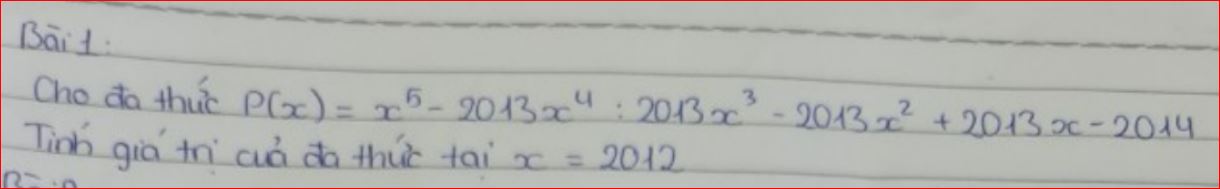 Bài 1:
Cho đa thức P(x) = x⁵ - 2013x⁴ : 2013x³ - 2013x² + 2013x - 2014
Tính giá trị cuả đa thức tại x = 2012